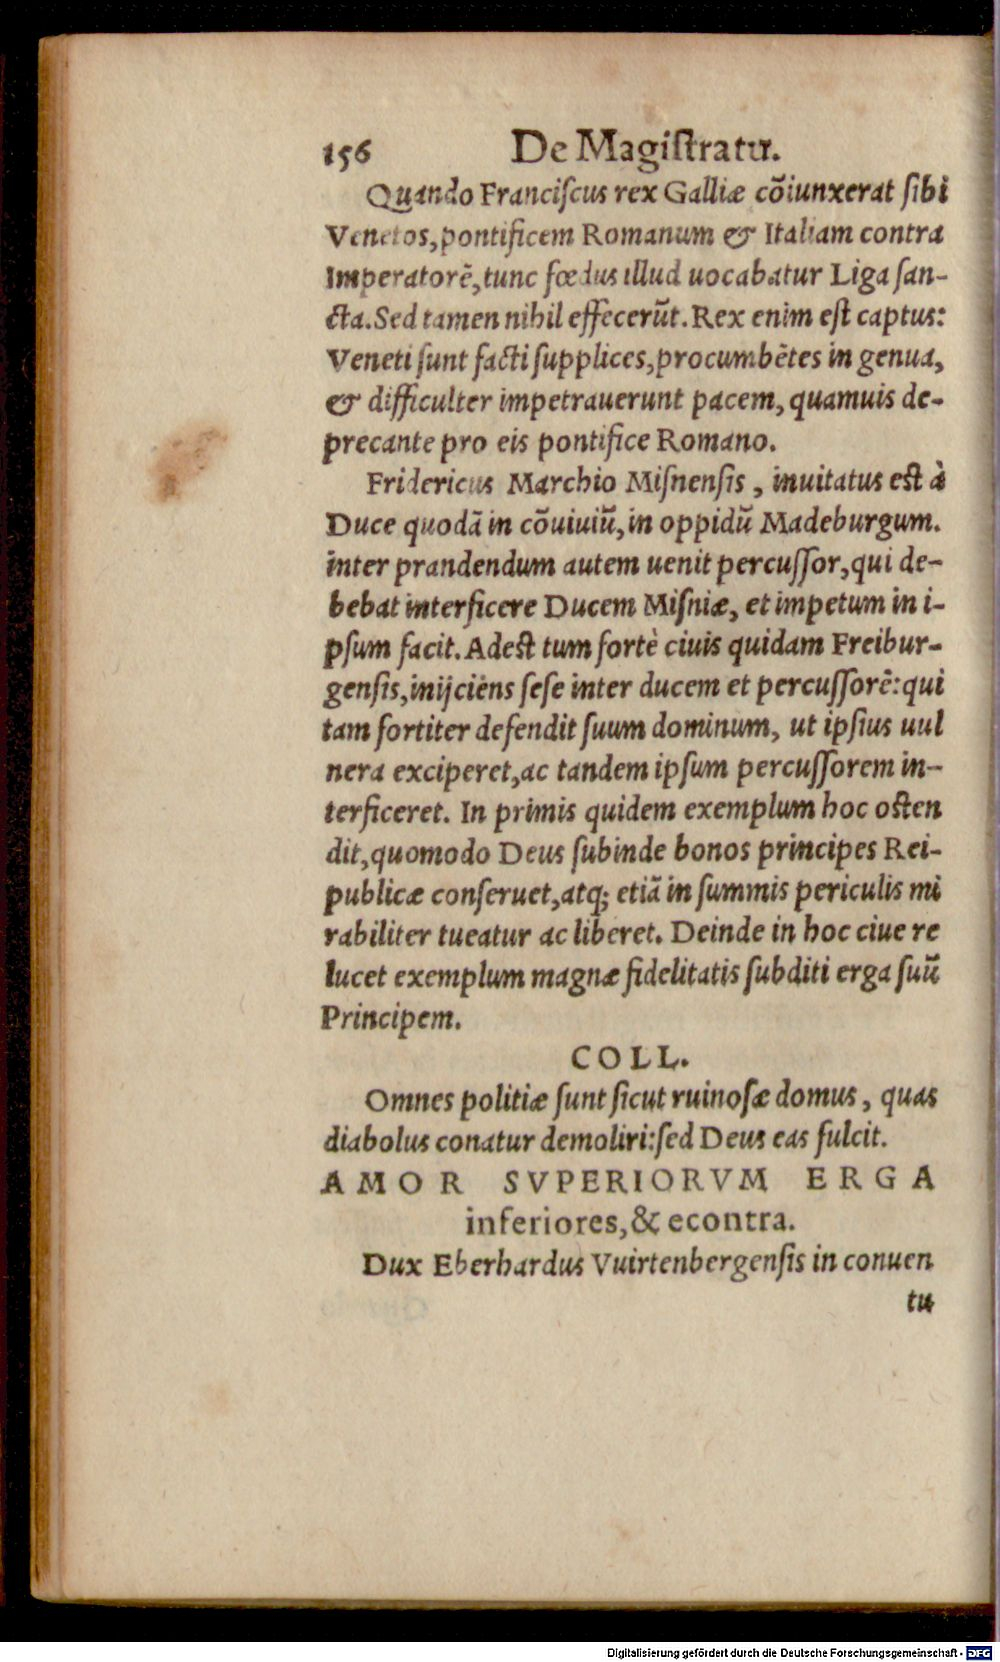 156 De Magiſtratu.
Quando Franciſcus rex Galliæ cõiunxerat ſibi
Venetos, pontificem Romanum & Italiam contra
Imperatorẽ, tunc fœdus illud uocabatur Liga ſan-
cta. Sed tamen nihil effecerũt. Rex enim eſt captus:
Veneti ſunt facti ſupplices, procumbẽtes in genua,
& difficulter impetrauerunt pacem, quamuis de-
precante pro eis pontifice Romano.
Fridericus Marchio Miſnenſis, inuitatus eſt à
Duce quodã in cõuiuiũ, in oppidũ Madeburgum.
inter prandendum autem uenit percuſſor, qui de-
bebat interficere Ducem Miſniæ, et impetum in i-
pſum facit. Adeſt tum fortè ciuis quidam Freibur-
genſis, inijciens ſeſe inter ducem et percuſſorẽ: qui
tam fortiter defendit ſuum dominum, ut ipſius uul
nera exciperet, ac tandem ipſum percuſſorem in-
terficeret. In primis quidem exemplum hoc oſten
dit, quomodo Deus ſubinde bonos principes Rei-
publicæ conſeruet, atq; etiã in ſummis periculis mi
rabiliter tueatur ac liberet. Deinde in hoc ciue re
lucet exemplum magnæ fidelitatis ſubditi erga ſuũ
Principem.
COLL.
Omnes politiæ ſunt ſicut ruinoſæ domus, quas
diabolus conatur demoliri: ſed Deus eas fulcit.
AMOR SVPERIORVM ERGA
inferiores, & econtra.
Dux Eberhardus Vuirtenbergenſis in conuen
tu
Digitalisierung gefördert durch die Deutsche Forschungsgemeinschaft - DFG